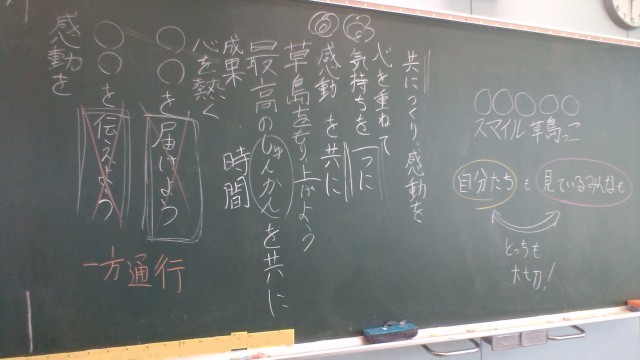 ○○○○○
スマイル草島っこ
自分たちも見ているみんなも
どっちも
大切!
共につくり、感動を
心を重ねて
気持ちを一つに
感動を共に
草島をもり上げよう
最高のじかんを共に
時間
成果、
心を熱く
○○を届けよう
○○を伝えよう
感動を
一方通行